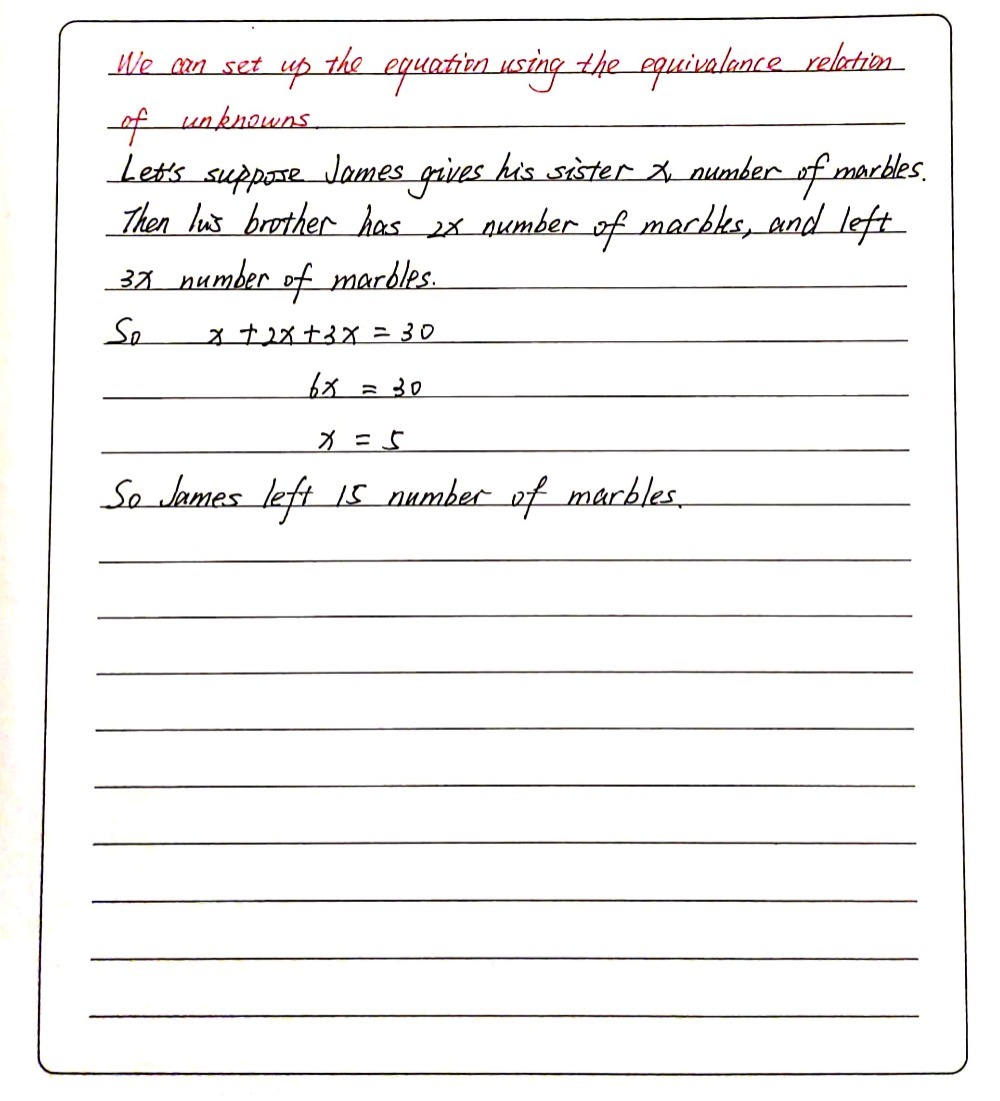 We can set up the equation using the equivalance relation
of unknowns.
Let's suppose James gives his sister x number of marbles.
Then his brother has 2x number of marbles, and left
3x number of marbles.
So x + 2x + 3x = 30
6x = 30
x = 5
So James left 15 number of marbles.